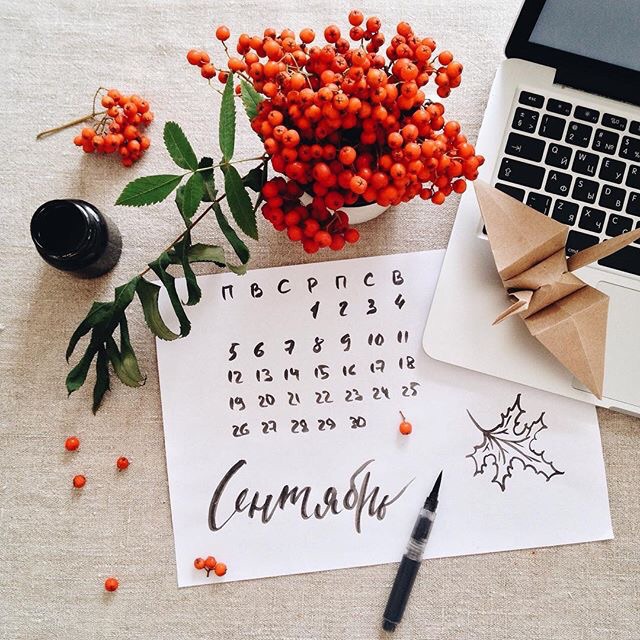 П В С Р П С В
1 2 3 4
5 6 7 8 9 10 11
12 13 14 15 16 17 18
19 20 21 22 23 24 25
26 27 28 29 30
Сентябрь